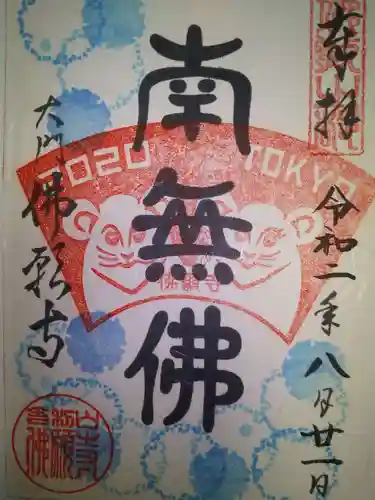 奉拝
令和二年八月廿一日
南無佛
2020 TOKYO
佛願寺
大門佛願寺